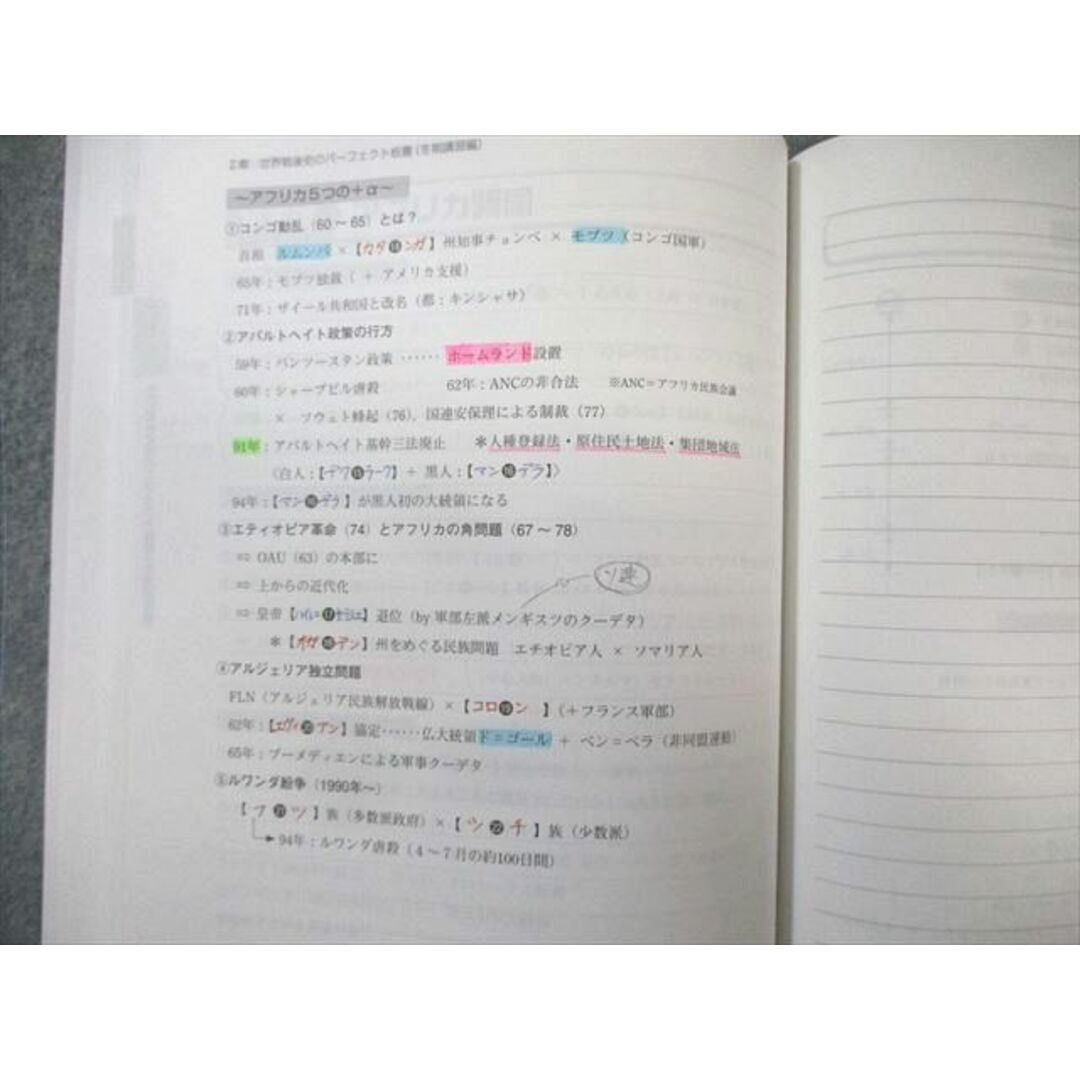 2章 世界戦後史のパーフェクト板書(冬期講習編)
～アフリカ5つの+α～
①コンゴ動乱（60～65）とは？
首相 ルムンバ ×【カタ⓮ンガ】州知事チョンベ × モブツ（コンゴ国軍）
65年：モブツ独裁（ + アメリカ支援）
71年：ザイール共和国と改名（都：キンシャサ）
②アパルトヘイト政策の行方
59年：バンツースタン政策 …… ホームランド設置
60年：シャープビル虐殺 62年：ANCの非合法 ※ANC＝アフリカ民族会議
× ソウェト蜂起（76）、国連安保理による制裁（77）
91年：アパルトヘイト基幹三法廃止 ＊人種登録法・原住民土地法・集団地域法
〈白人：【デク⓯ラーク】 + 黒人：【マン⓰デラ】〉
94年：【マン⓰デラ】が黒人初の大統領になる
③エティオピア革命（74）とアフリカの角問題（67～78）
⇒ OAU（63）の本部に
⇒ 上からの近代化
ソ連
⇒ 皇帝【ハイレ=⓱セラシエ】退位（by 軍部左派メンギスツのクーデタ）
＊【オガ⓲デン】州をめぐる民族問題 エチオピア人 × ソマリア人
④アルジェリア独立問題
FLN（アルジェリア民族解放戦線）×【コロ⓳ン】（+フランス軍部）
62年：【エヴィ⓴アン】協定……仏大統領ド＝ゴール + ベン＝ベラ（非同盟運動）
65年：ブーメディエンによる軍事クーデタ
⑤ルワンダ紛争（1990年～）
【フ㉑ツ】族（多数派政府）×【ツ㉒チ】族（少数派）
94年：ルワンダ虐殺（4～7月の約100日間）